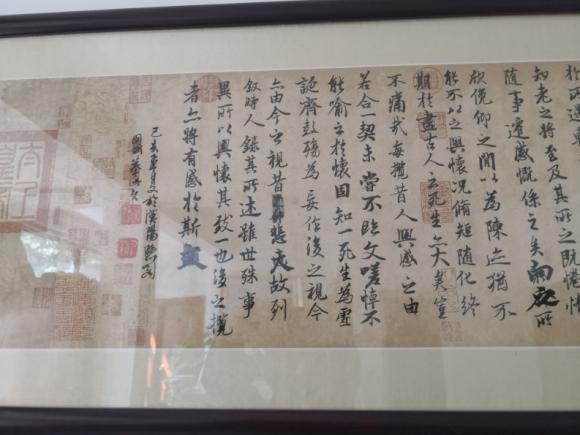 於所遇
知老之將至及其所之既惓情
隨事遷感慨係之矣向之所
欣俛仰之閒以為陳迹猶不
能不以之興懷況脩短隨化終
期於盡古人云死生亦大矣豈
不痛哉每攬昔人興感之由
若合一契未嘗不臨文嗟悼不
能喻之於懷固知一死生為虛
誕齊彭殤為妄作後之視今
亦由今之視昔悲夫故列
敘時人錄其所述雖世殊事
異所以興懷其致一也後之攬
者亦將有感於斯文
己亥年夏於漢陽